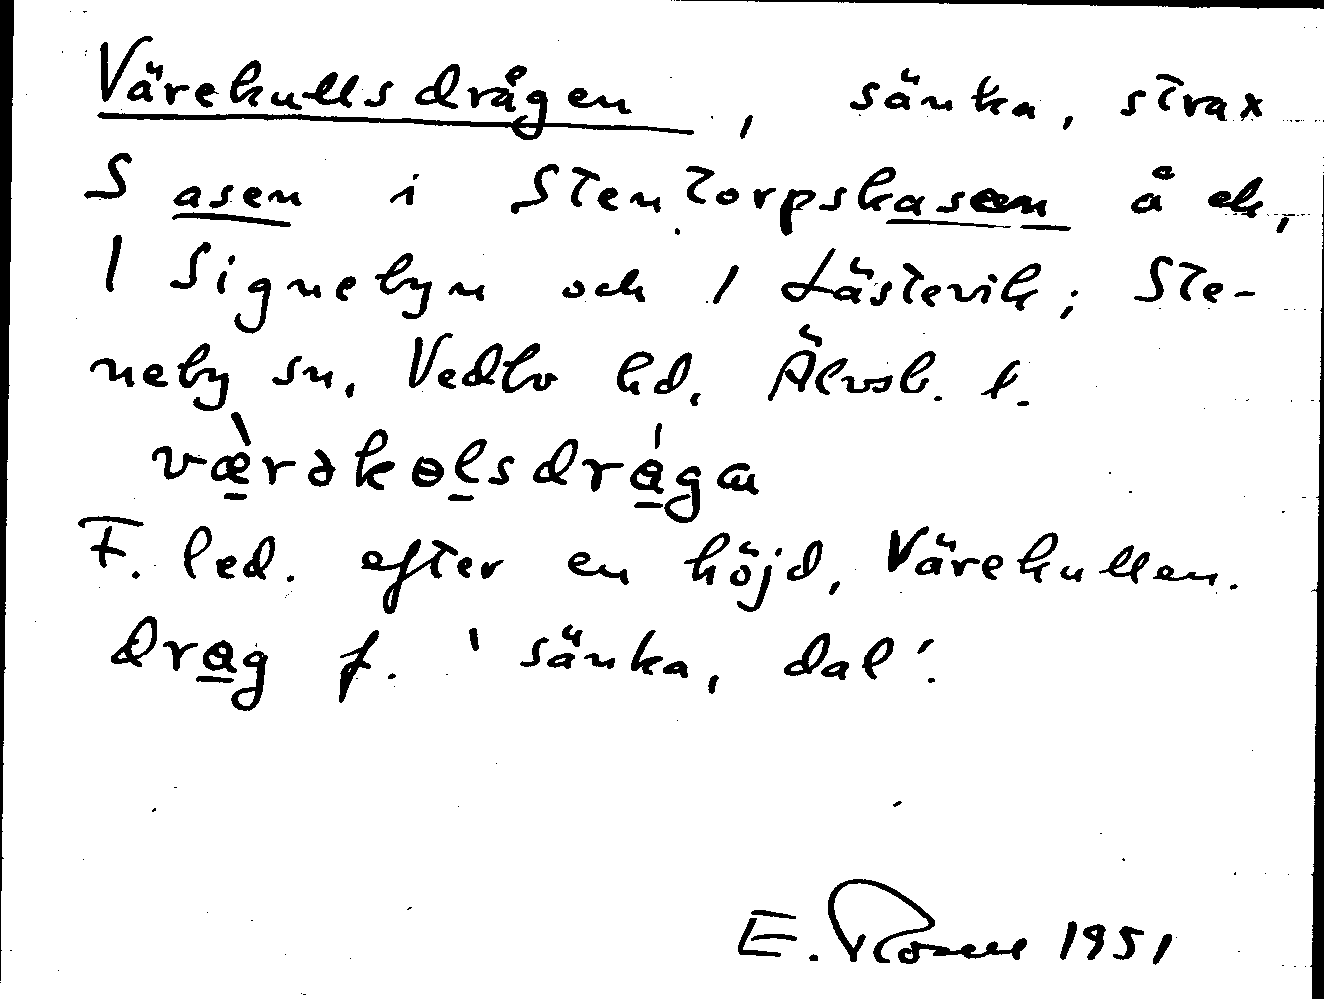 Värekullsdrågen, sänka, strax
S asen i Stentorpskasen å ek,
1 Signebyn och 1 Låstevik; Ste-
neby sn, Vedbo hd, Älvsb. l.
væ̀rəkɵlsdrágɑ
F. led. efter en höjd, Värekullen.
drag f. 'sänka, dal'.
E. 1951